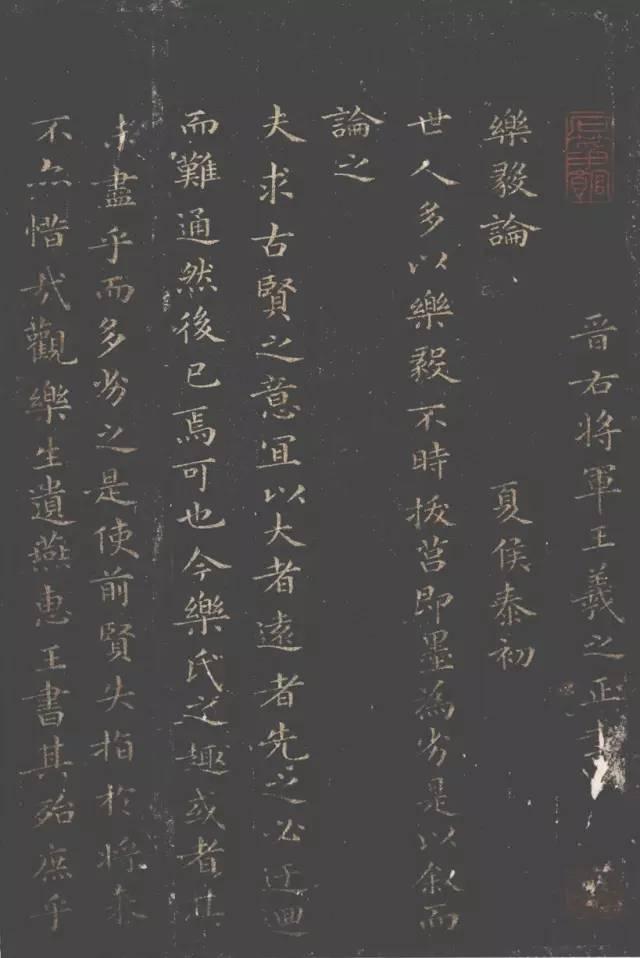 晉右將軍王羲之正書
樂毅論 夏侯泰初
世人多以樂毅不時拔莒即墨為劣是以叙而
論之
夫求古賢之意宜以大者遠者先之必迂迴
而難通然後已焉可也今樂氏之趣或者其
未盡乎而多劣之是使前賢失指於將來
不亦惜哉觀樂生遺燕惠王書其殆庶乎